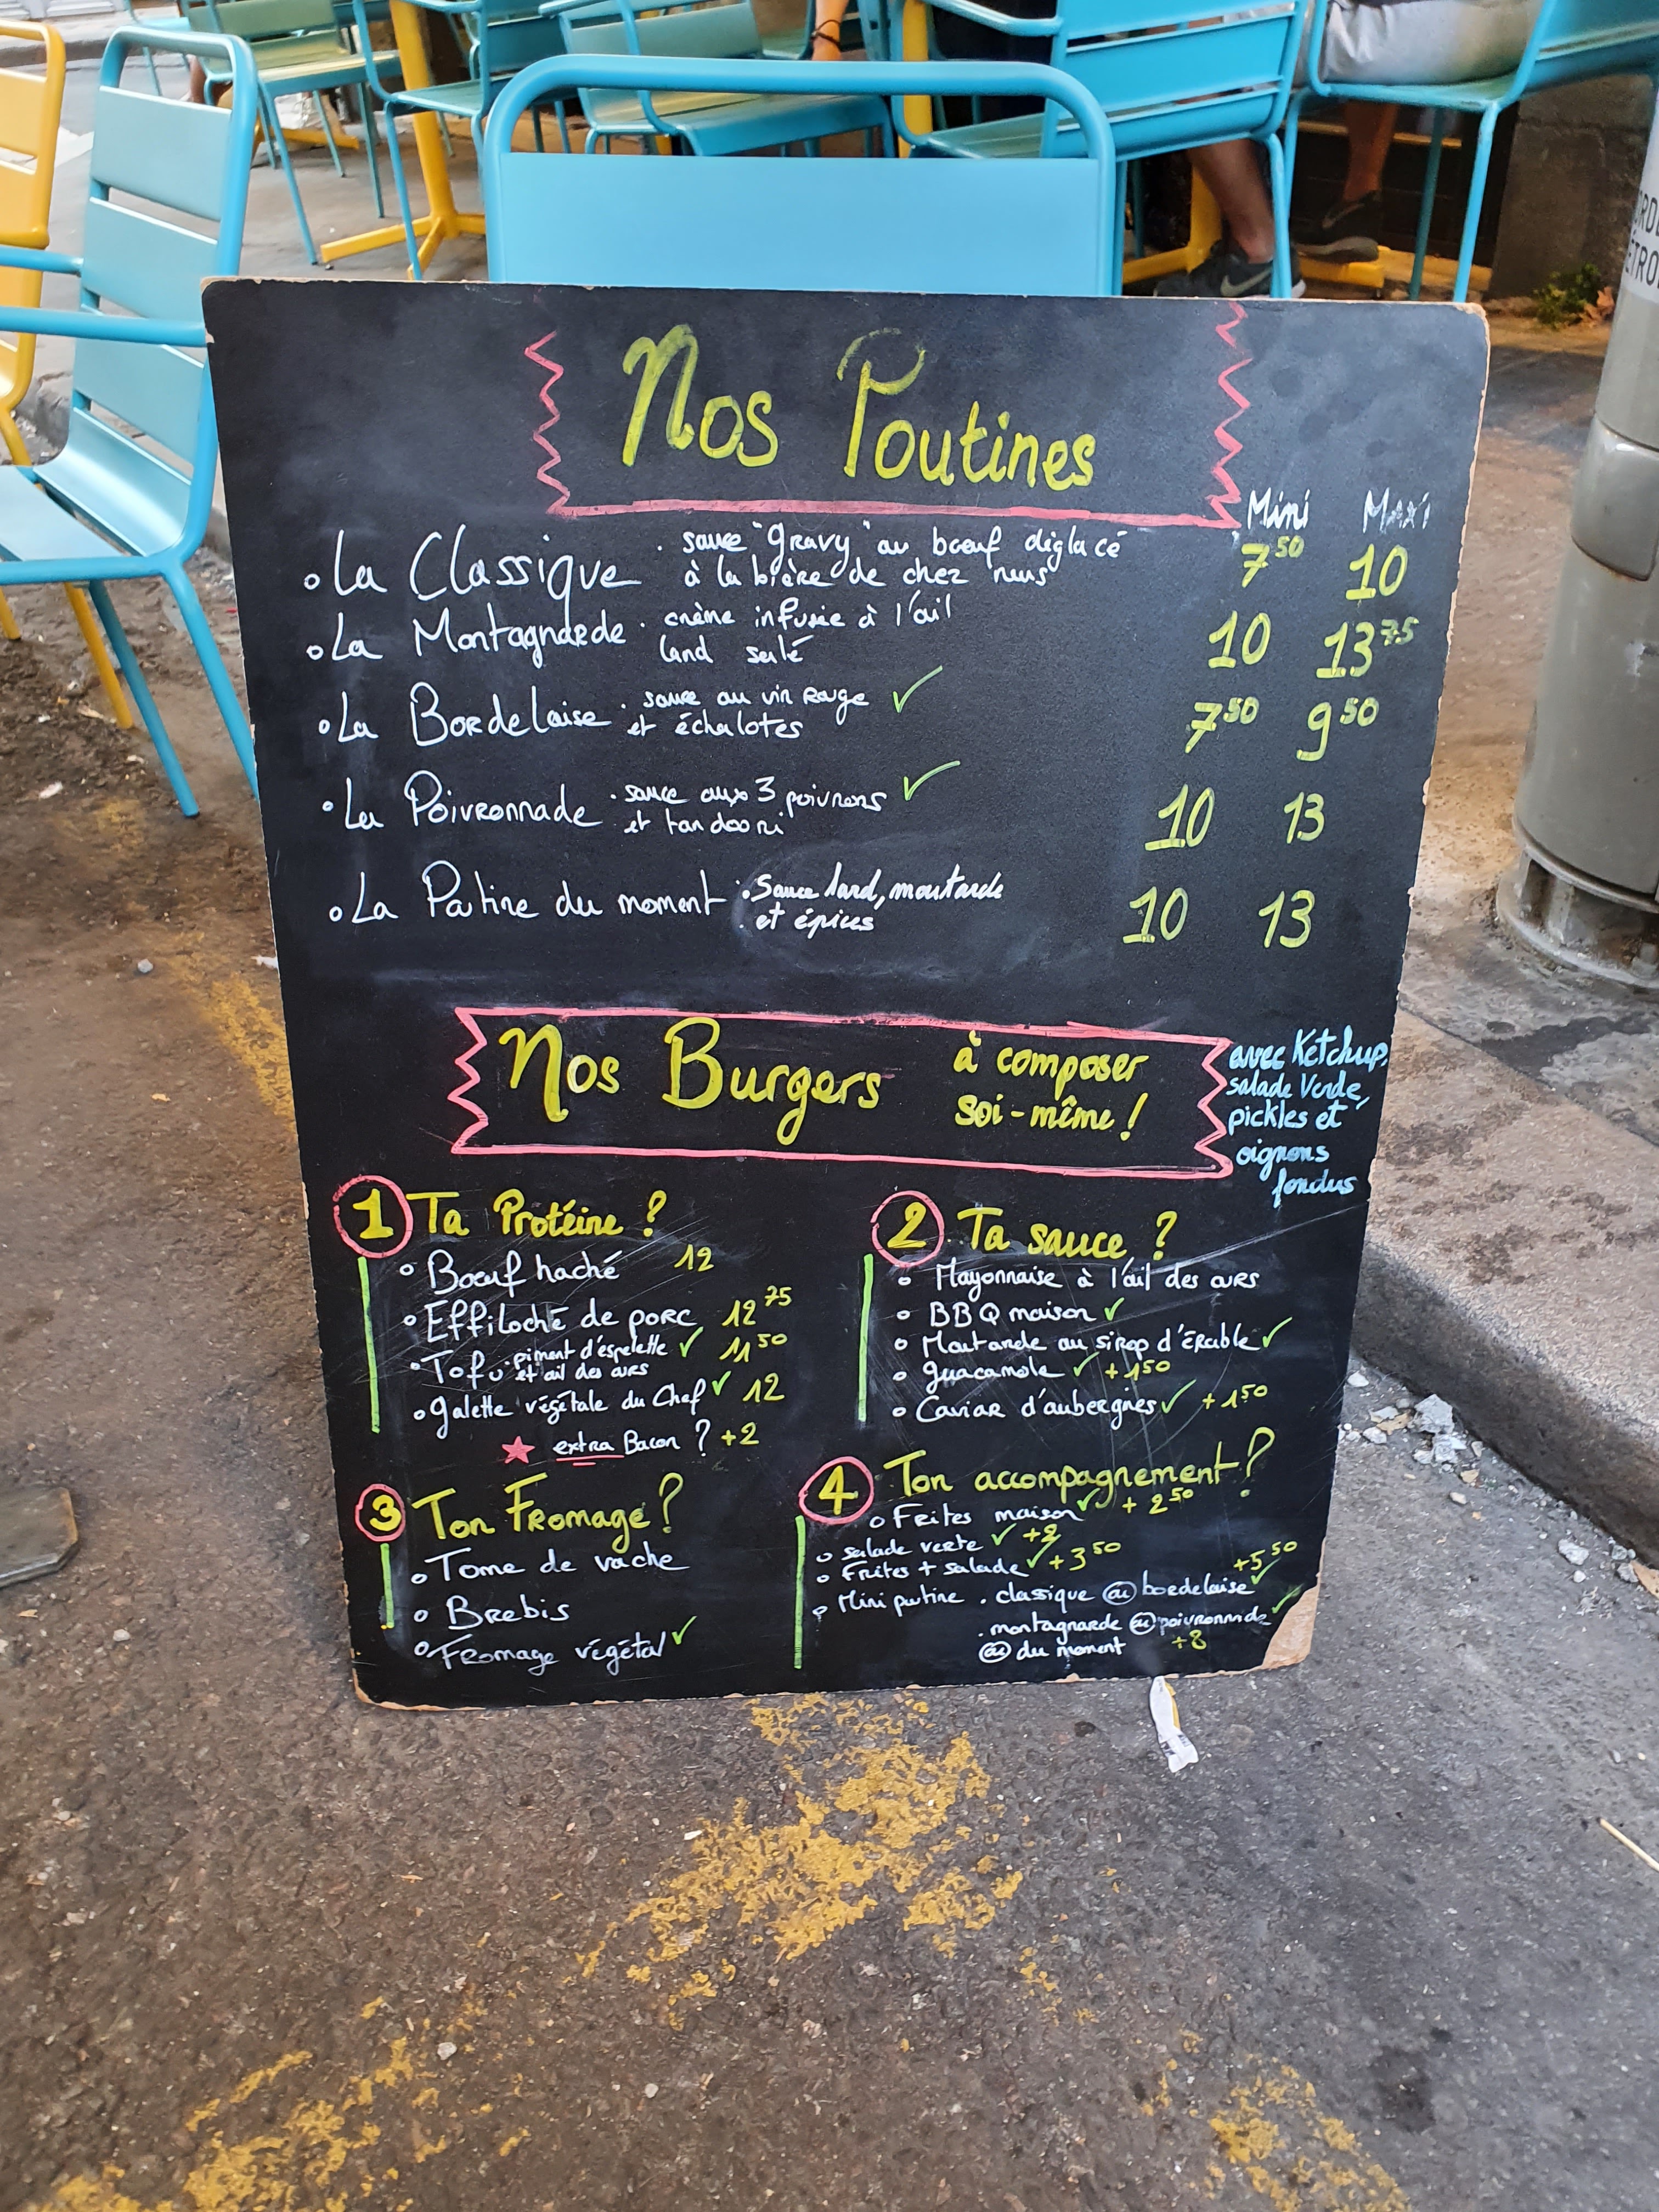 Nos Poutines
Mini Maxi
La Classique . sauce "gravy" au bœuf déglacé 7 50 10
à la bière de chez nous
La Montagnarde . crème infusée à l'ail 10 13 75
lard salé
La Bordelaise . sauce au vin rouge ✓ 7 50 9 50
et échalotes
La Poivronnade . sauce aux 3 poivrons ✓ 10 13
et tandoori
La Poutine du moment . Sauce lard, moutarde 10 13
et épices
Nos Burgers à composer
soi-même !
avec Ketchup,
salade Verte,
pickles et
oignons
fondus
1 Ta Protéine ?
Bœuf haché 12
Effiloché de porc 12 75
Tofu . piment d'espelette ✓ 11 50
et ail des ours
Galette végétale du Chef ✓ 12
extra Bacon ? +2
2 Ta sauce ?
Mayonnaise à l'ail des ours
BBQ maison ✓
Moutarde au sirop d'érable ✓
guacamole ✓ +1 50
Caviar d'aubergines ✓ +1 50
3 Ton Fromage ?
Tome de vache
Brebis
Fromage végétal ✓
4 Ton accompagnement ?
Frites maison ✓ +2 50
salade verte ✓ +2
Frites + salade ✓ +3 50
Mini putine . classique ou bordelaise ✓ +5 50
. montagnarde ou poivronnade ✓
ou du moment +8